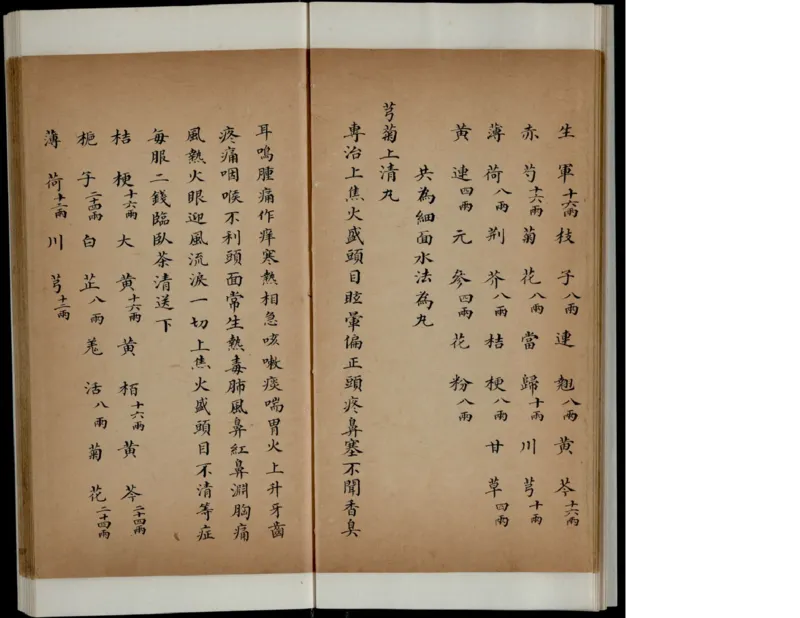 生軍十六兩枝子八兩連翹八兩黃芩十六兩
赤芍十六兩菊花八兩當歸十兩川芎十兩
薄荷八兩荊芥八兩桔梗八兩甘草四兩
黃連四兩元參四兩花粉八兩
共為細面水法為丸
芎菊上清丸
專治上焦火盛頭目眩暈偏正頭疼鼻塞不聞香臭
耳鳴腫痛作痒寒熱相急咳嗽痰喘胃火上升牙齒
疼痛咽喉不利頭面常生熱毒肺風鼻紅鼻淵胸痛
風熱火眼迎風流淚一切上焦火盛頭目不清等症
每服二錢臨臥茶清送下
桔梗十六兩大黃十六兩黃栢十六兩黃芩二十四兩
梔子二十四兩白芷八兩羗活八兩菊花二十四兩
薄荷十二兩川芎十二兩